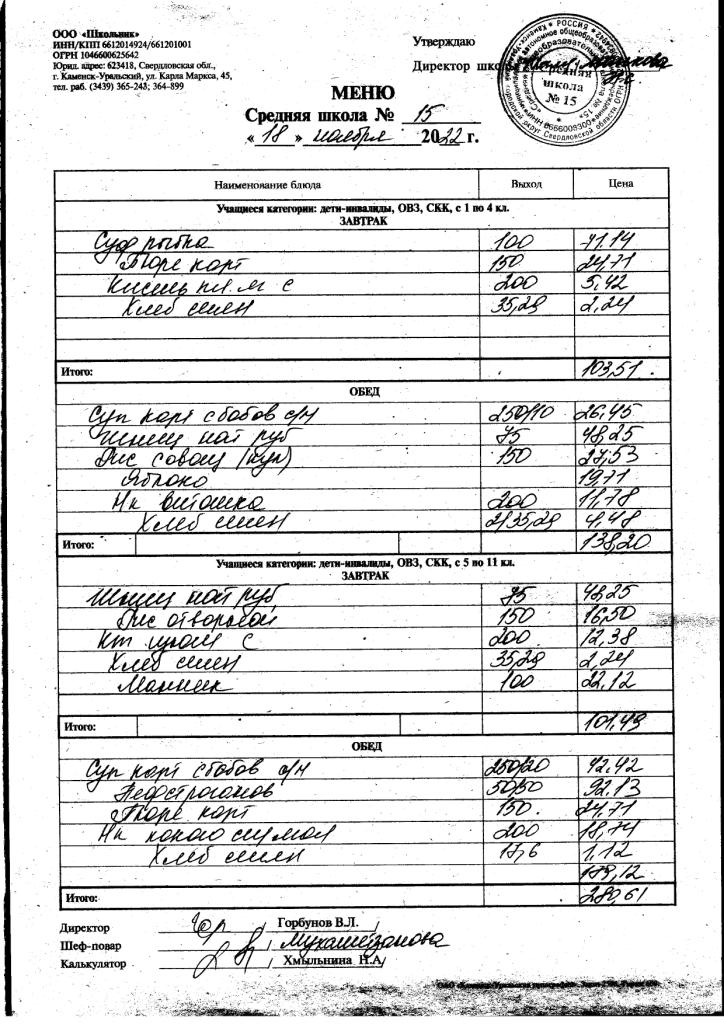 ООО «Школьник»
ИНН/КПП 6612014924/661201001
ОГРН 1046600625642
Юрид. адрес: 623418, Свердловская обл.,
г. Каменск-Уральский, ул. Карла Маркса, 45,
тел. раб. (3439) 365-248; 364-899
Утверждаю
Директор школы
средняя
школа
№ 15
МЕНЮ
Средняя школа № 15
« 18 » ноября 2022 г.
Наименование блюда Выход Цена
Учащиеся категории: дети-инвалиды, ОВЗ, СКК, с 1 по 4 кл.
ЗАВТРАК
Суф рыбна 100 71.14
Пюре карт 150 24,71
Кисель пл.м с 200 5,42
Хлеб смен 35,29 2,24
Итого: 103,51
ОБЕД
Суп карт с бобов с/н 250/10 26,45
Шниц нат руб 75 48,25
Рис с овощ (кук) 150 27,53
Яблоко 19,71
Нк витошка 200 11,78
Хлеб смен 2/35,29 4,48
Итого: 138,20
Учащиеся категории: дети-инвалиды, ОВЗ, СКК, с 5 по 11 кл.
ЗАВТРАК
Шниц нат руб 75 48,25
Рис отварной 150 16,50
Кт с 200 12,38
Хлеб смен 35,29 2,24
Манник 100 22,12
Итого: 101,49
ОБЕД
Суп карт с бобов с/н 250/20 42,42
Бефстроганов 50/50 92,13
Пюре карт 150 24,71
Нк какао с мол 200 18,74
Хлеб смен 17,6 1,12
179,12
Итого: 280,61
Директор Горбунов В.Л.
Шеф-повар
Калькулятор Хмыльнина Н.А